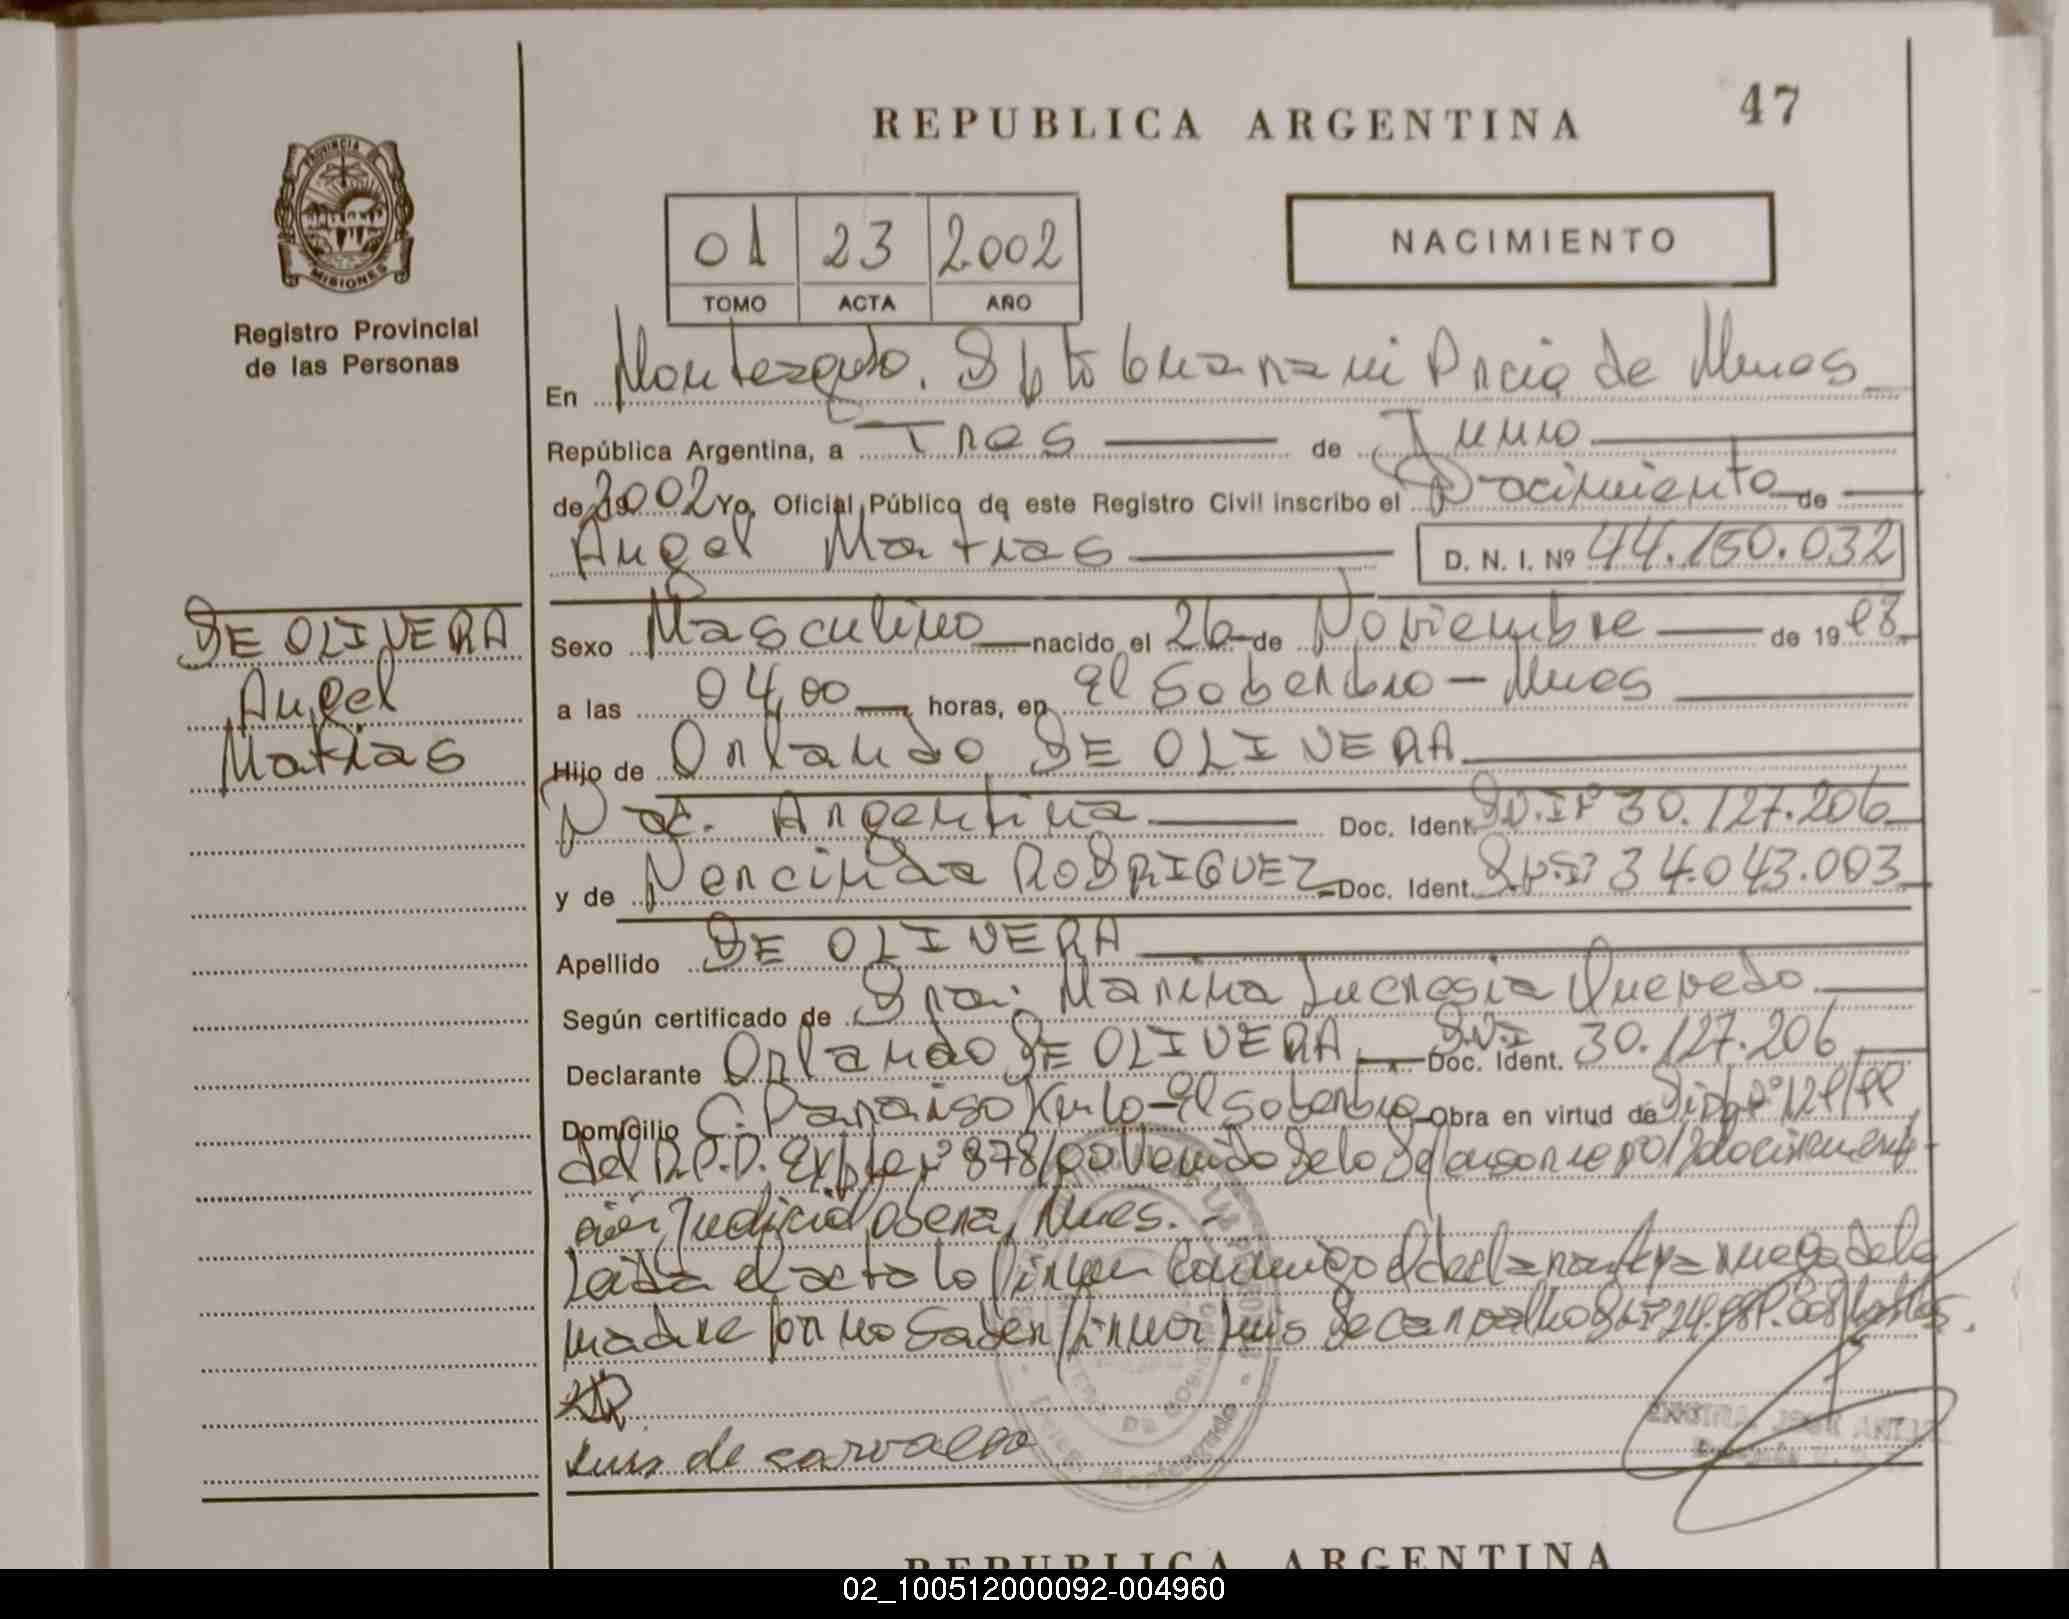 47
REPUBLICA ARGENTINA
PROVINCIA DE
MISIONES
Registro Provincial
de las Personas
01 23 2002
TOMO ACTA AÑO
NACIMIENTO
En Monteagudo. Dpto Guarani Pncia de Mnes
República Argentina, a Tres de Junio
de 2002 Yo, Oficial Público de este Registro Civil inscribo el Nacimiento de
Angel Matias D. N. I. Nº 44.150.032
DE OLIVERA
Angel
Matias
Sexo Masculino nacido el 26 de Noviembre de 19 98
a las 04,00 horas, en El Soberbio - Mnes
Hijo de Orlando DE OLIVERA
Nac. Argentina Doc. Ident. D.N.I Nº 30.127.206
y de Nercinda RODRIGUEZ Doc. Ident. D.N.I 34.043.003
Apellido DE OLIVERA
Según certificado de Sra. Marina Lucresia Quevedo
Declarante Orlando DE OLIVERA Doc. Ident. D.N.I 30.127.206
Domicilio C. Paraiso Km 10 - El Soberbio Obra en virtud de
del R.P.P. Expte Nº 878/00
Judicial Obera, Mnes. -
Leida el acta la firman conmigo el declarante y a ruego de la
madre por no saber firmar Luis De Carvalho
Luis de carvalho
Monteagudo
REPUBLICA ARGENTINA
02_100512000092-004960